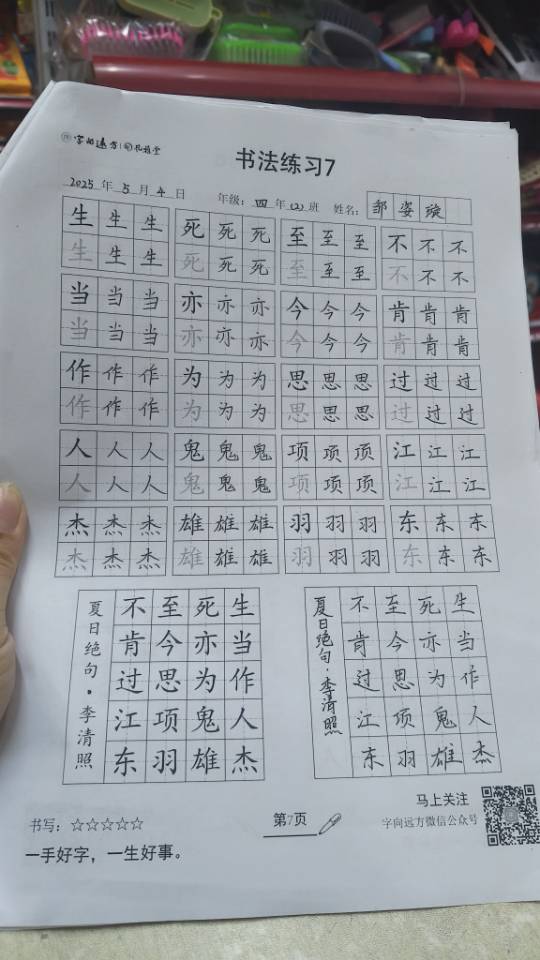 字向远方
书法练习7
2025 年 5 月 4 日 年级: 四 年 (2) 班 姓名: 邹姿璇
生 生 生 死 死 死 至 至 至 不 不 不
生 生 生 死 死 死 至 至 至 不 不 不
当 当 当 亦 亦 亦 今 今 今 肯 肯 肯
当 当 当 亦 亦 亦 今 今 今 肯 肯 肯
作 作 作 为 为 为 思 思 思 过 过 过
作 作 作 为 为 为 思 思 思 过 过 过
人 人 人 鬼 鬼 鬼 项 项 项 江 江 江
人 人 人 鬼 鬼 鬼 项 项 项 江 江 江
杰 杰 杰 雄 雄 雄 羽 羽 羽 东 东 东
杰 杰 杰 雄 雄 雄 羽 羽 羽 东 东 东
生当作人杰
死亦为鬼雄
至今思项羽
不肯过江东
夏日绝句·李清照
生当作人杰
死亦为鬼雄
至今思项羽
不肯过江东
夏日绝句·李清照
书写: ☆☆☆☆☆
一手好字，一生好事。
第7页
马上关注
字向远方微信公众号